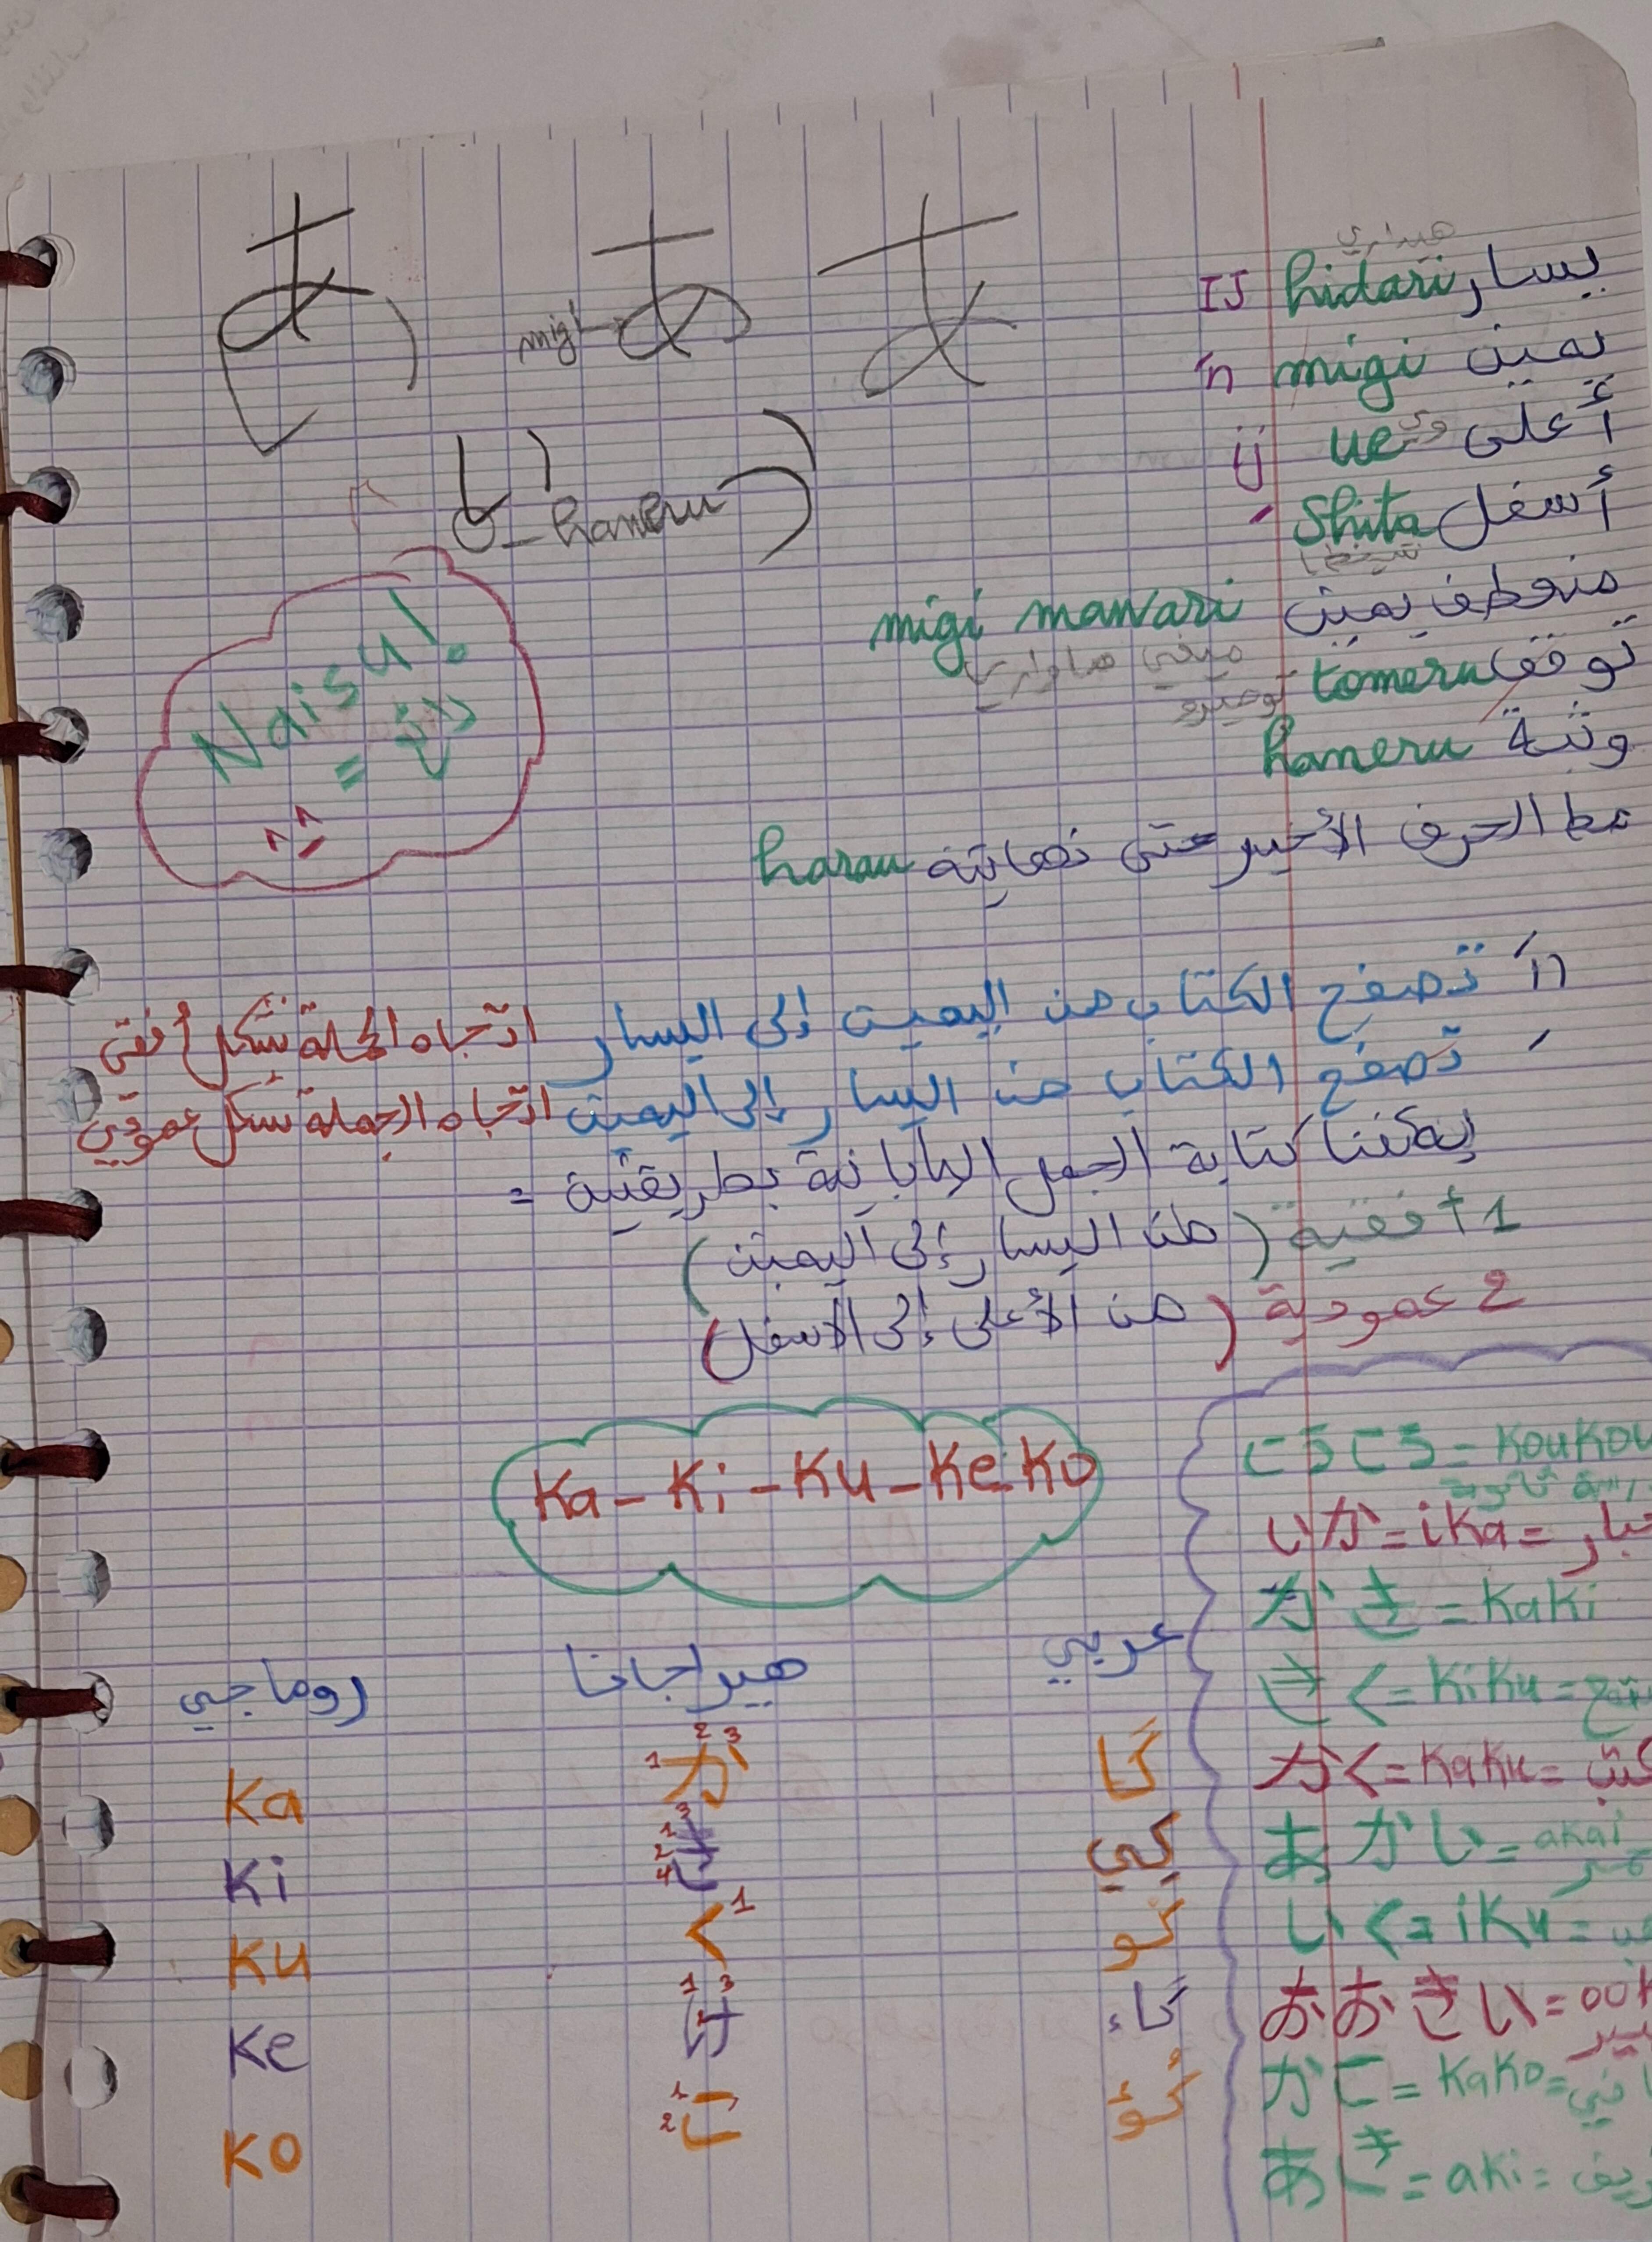 あ あ あ
migi
い
haneru
هيداري
يسار hidari
يمين migi
أعلى ue
أسفل Shita
شيطا
منعطف يمين migi mawari
ميغي ماواري
توقف tomeru
توميرو
وثبة haneru
مط الحرف الأخير حتى نهايته harau
Naisu!
=
تصفح الكتاب من اليمين إلى اليسار اتجاه الجملة بشكل أفقي
تصفح الكتاب من اليسار إلى اليمين اتجاه الجملة بشكل عمودي
يمكننا كتابة الجمل اليابانية بطريقتين =
1 أفقية (من اليسار إلى اليمين)
2 عمودية (من الأعلى إلى الاسفل)
Ka - Ki - Ku - Ke Ko
عربي هيراجانا روماجي
گا か 1 2 3 Ka
كيي き 1 2 3 4 Ki
كو く 1 Ku
گاء け 1 2 3 Ke
كؤ こ 1 2 Ko
こうこう = KouKou
いか = iKa =
かき = KaKi
きく = KiKu =
かく = KaKu =
あかい = aKai
いく = iKu =
おおきい = ooK
かこ = KaKo =
あき = aKi =